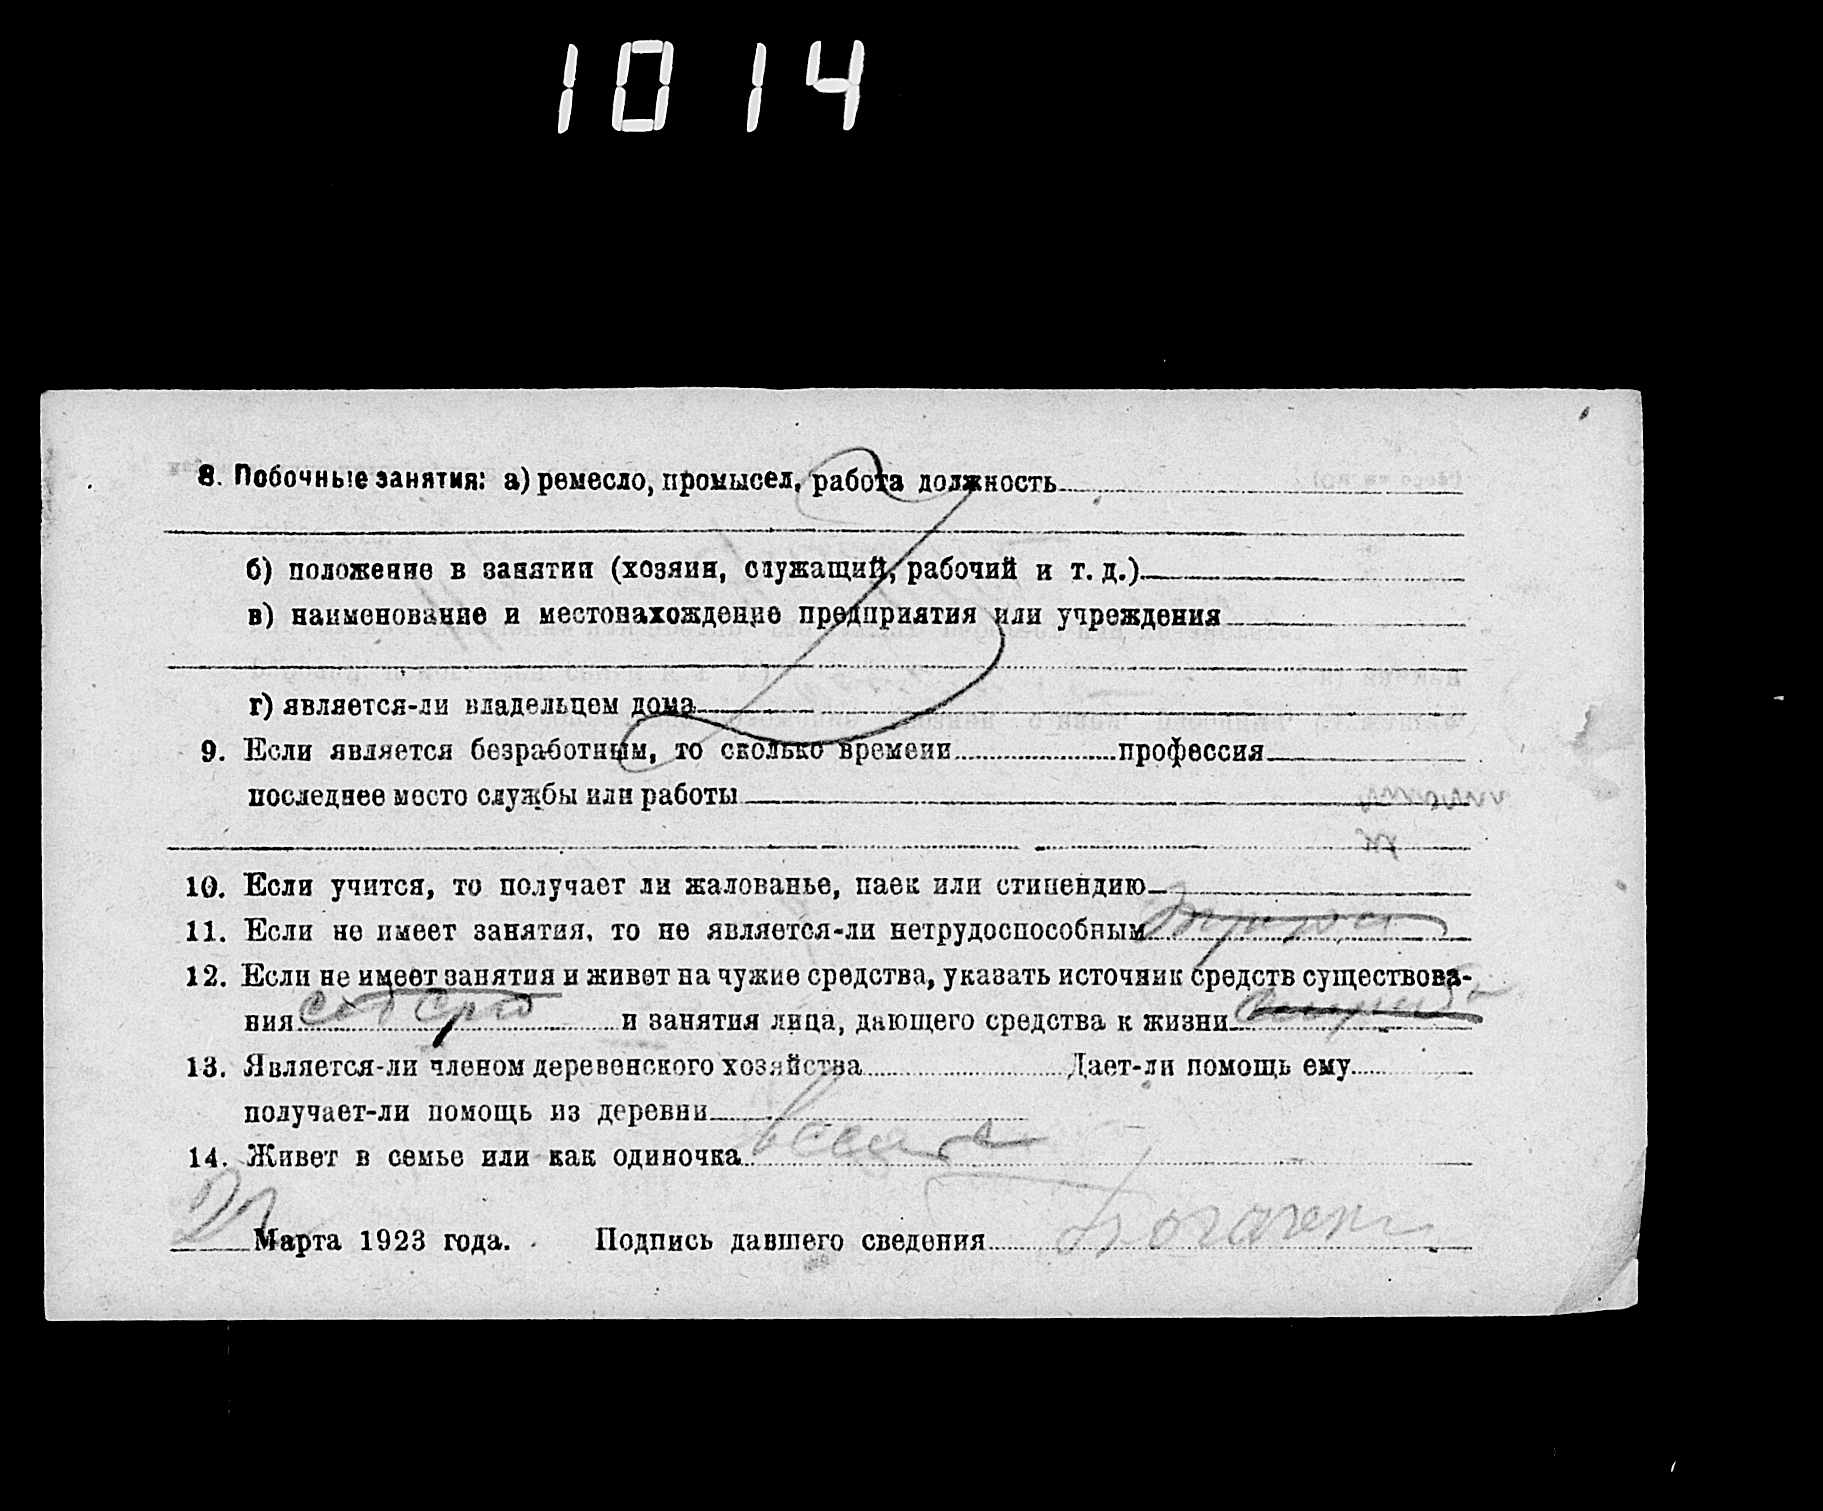 1014
8. Побочные занятия: а) ремесло, промысел, работа должность
б) положение в занятии (хозяин, служащий, рабочий и т. д.)
в) наименование и местонахождение предприятия или учреждения
г) является-ли владельцем дома
9. Если является безработным, то сколько времени профессия
последнее место службы или работы
10. Если учится, то получает ли жалованье, паек или стипендию
11. Если не имеет занятия, то не является-ли нетрудоспособным
12. Если не имеет занятия и живет на чужие средства, указать источник средств существова-
ния и занятия лица, дающего средства к жизни
13. Является-ли членом деревенского хозяйства Дает-ли помощь ему
получает-ли помощь из деревни
14. Живет в семье или как одиночка
Марта 1923 года. Подпись давшего сведения